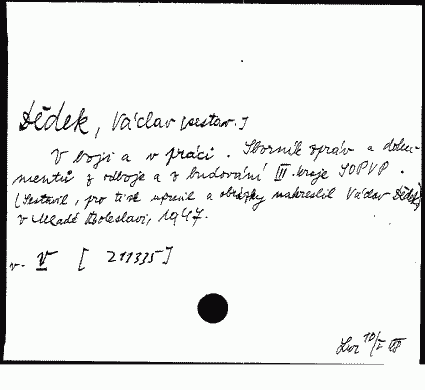 Dědek, Václav [sestav.]
V boji a v práci. Sborník zpráv a doku-
mentů z odboje a z budování III. kraje SOPVP.
(Sestavil, pro tisk upravil a obrázky nakreslil Václav Dědek)
v Mladé Boleslavi, 1947.
v. V [211335]
10/I 48